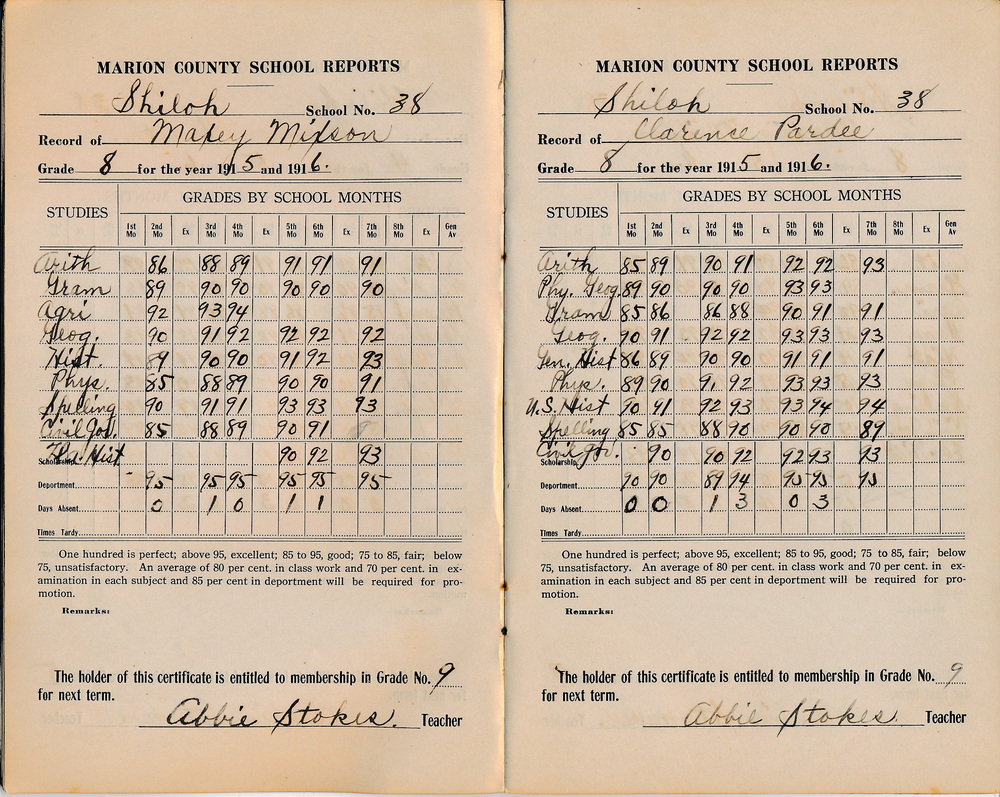 MARION COUNTY SCHOOL REPORTS
Shiloh School No. 38
Record of Maxey Mixson
Grade 8 for the year 1915 and 1916.
STUDIES GRADES BY SCHOOL MONTHS
1st Mo 2nd Mo Ex 3rd Mo 4th Mo Ex 5th Mo 6th Mo Ex 7th Mo 8th Mo Ex Gen Av
Arith 86 88 89 91 91 91
Gram 89 90 90 90 90 90
Agri 92 93 94
Geog. 90 91 92 92 92 92
Hist. 89 90 90 91 92 93
Phys. 85 88 89 90 90 91
Spelling 90 91 91 93 93 93
Civil Gov. 85 88 89 90 91
Scholarship Fla. Hist 90 92 93
Department 95 95 95 95 95 95
Days Absent 0 1 0 1 1
Times Tardy
One hundred is perfect; above 95, excellent; 85 to 95, good; 75 to 85, fair; below
75, unsatisfactory. An average of 80 per cent. in class work and 70 per cent. in ex-
amination in each subject and 85 per cent in deportment will be required for pro-
motion.
Remarks:
The holder of this certificate is entitled to membership in Grade No. 9
for next term.
Abbie Stokes. Teacher
MARION COUNTY SCHOOL REPORTS
Shiloh School No. 38
Record of Clarence Pardee
Grade 8 for the year 1915 and 1916.
STUDIES GRADES BY SCHOOL MONTHS
1st Mo 2nd Mo Ex 3rd Mo 4th Mo Ex 5th Mo 6th Mo Ex 7th Mo 8th Mo Ex Gen Av
Arith 85 89 90 91 92 92 93
Phy. Geog. 89 90 90 90 93 93
Gram 85 86 86 88 90 91 91
Geog. 90 91 92 92 93 93 93
Gen. Hist 86 89 90 90 91 91 91
Phys. 89 90 91 92 93 93 93
U.S. Hist 90 91 92 93 93 94 94
Spelling 85 85 88 90 90 90 89
Civil Gov. 90 90 92 92 93 93
Scholarship
Department 90 90 89 94 95 95 95
Days Absent 0 0 1 3 0 3
Times Tardy
One hundred is perfect; above 95, excellent; 85 to 95, good; 75 to 85, fair; below
75, unsatisfactory. An average of 80 per cent. in class work and 70 per cent. in ex-
amination in each subject and 85 per cent in deportment will be required for pro-
motion.
Remarks:
The holder of this certificate is entitled to membership in Grade No. 9
for next term.
Abbie Stokes. Teacher